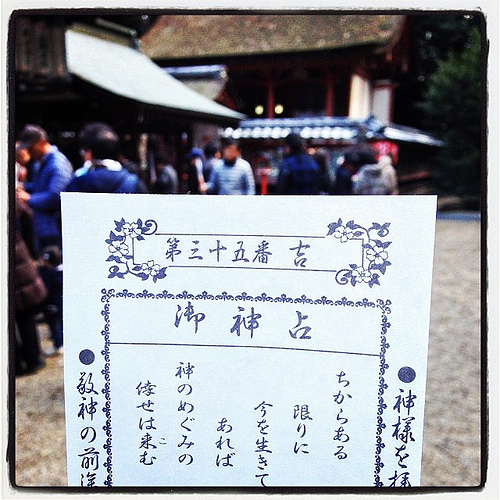 第三十五番 吉
御神占
●神様を拝
ちからある
限りに
今を生きて
あれば
神のめぐみの
倖せは来む
こ
●敬神の前